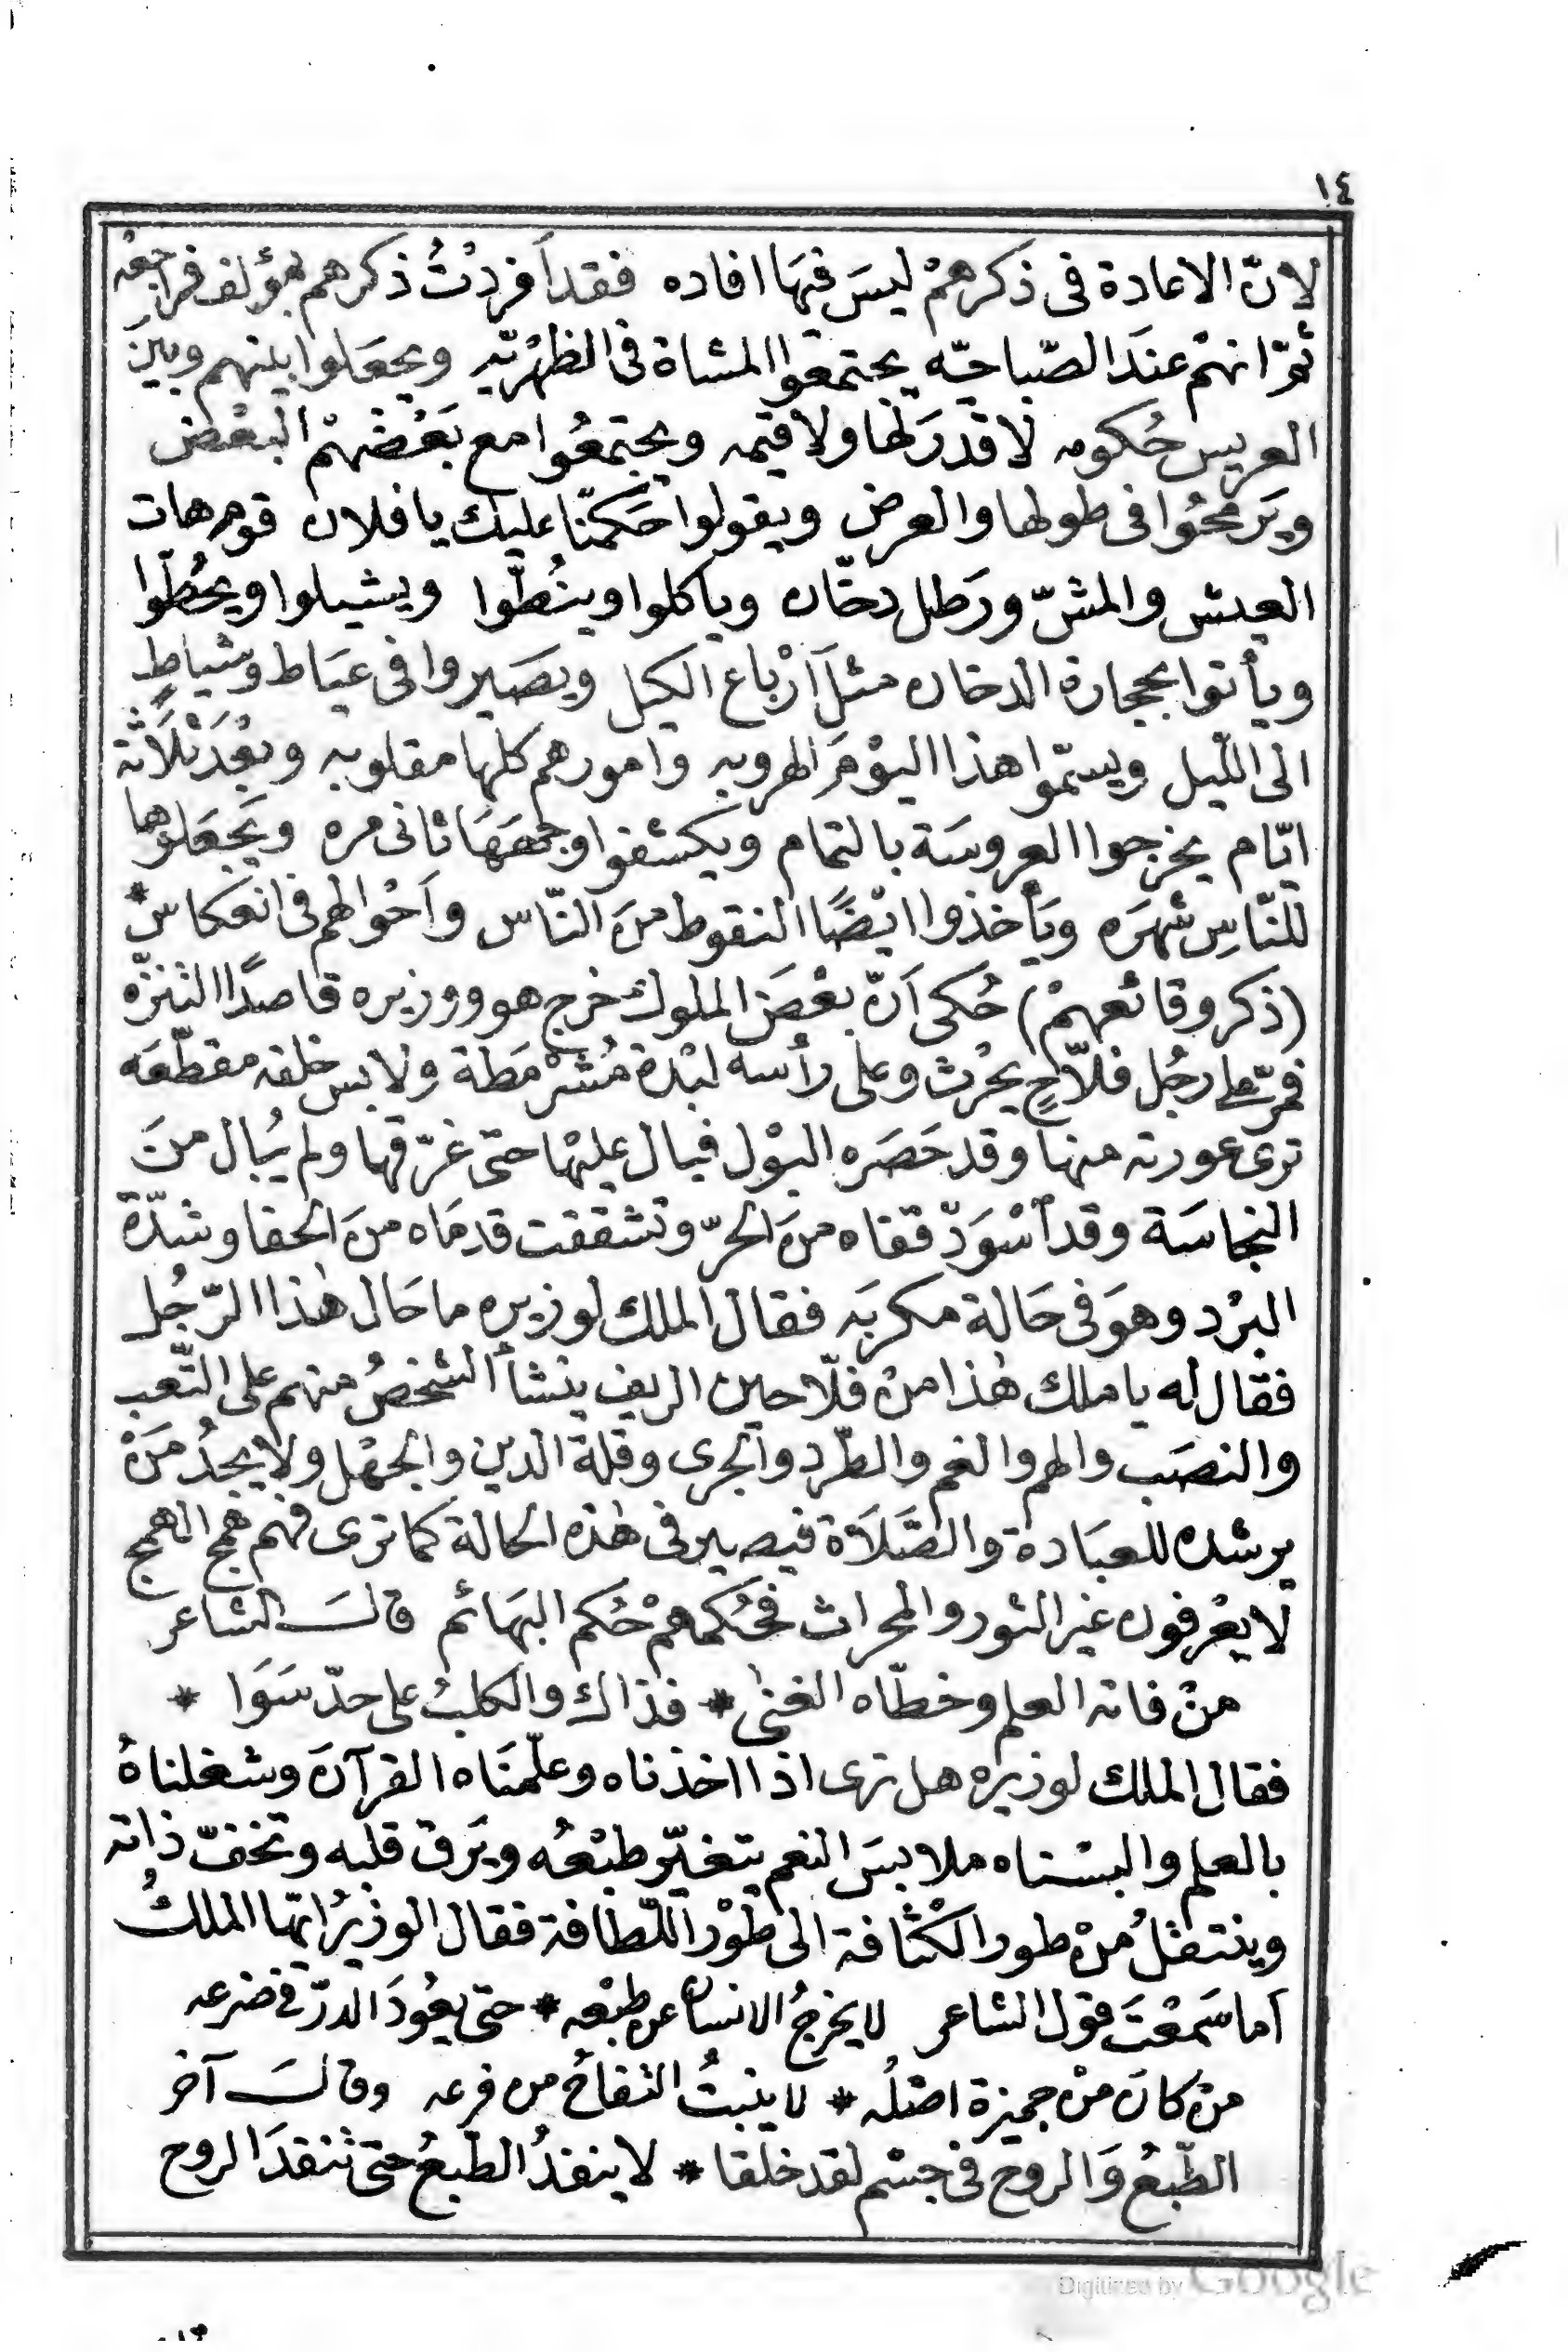 ١٤
لانّ الاعادة فى ذكرهمْ ليسَ فيهَا افاده فقد أفردْتُ ذكرهم بمؤلف فراجعْه
ثمّ انهمْ عندَ الصّباحيّه يجتمعوا المشاة فى الظهْريّه ويجعَلوا بينهم وبينَ
العريس حُكومه لا قدرَ لها ولا قيمه ويجتمعُوا مع بَعْضهمْ البعْض
ويَرمحُوا فى طولها والعرض ويقولوا حَكمنّا عليك يا فلان قوم هات
العيش والمشّ ورَطل دخّان وياكلوا وينُطّوا ويشيلوا ويحُطّوا
ويأتوا بحجارة الدخان مثلَ أرْباع الكيل ويصَيروا فى عيَاط وشياطٍ
الى اللّيل ويسمّوا هذا اليوْمَ الهروبه وامورهم كلها مقلوبه وبعْدَ ثلَاثة
ايّام يخرجوا العروسَة بالتمام ويكشفوا وجههَا ثانى مره ويَجْعَلوها
للنّاسِ شهرَه ويَأخذوا ايْضًا النقوط منَ النّاس وأحْوالهم فى انعكاسْ *
(ذكر وقائعهمْ) حُكى أنّ بعْضَ الملوك خرج هو ووزيره قاصدًا التنزّه
فمرّ على رجُل فلّاحٍ يحْرث وعلى رأسه لبْدة مُشرْمَطة ولابس خلقه مقطّعَه
ترى عورته منها وقد حَصَره البوْل فبال عليْها حتى غرّقها ولم يُبال منَ
النجاسَة وقد أسْوَدّ قفاه منَ الحرّ وتشققت قدمَاه منَ الحفا وشدّة
البرْد وهوَ فى حَالة مكربَه فقال الملك لوزيره ما حَال هٰذا الرّجُل
فقال له يا ملك هٰذا منْ فلّاحين الريف ينشأ الشخصُ منهم على التَّعب
والنصَب والهم والغم والطّرد والجرى وقلة الدين والجهْل ولا يجدُ مَنْ
يرشده للعبَادة والصَّلَاة فيصير فى هٰذه الحالة كما ترى فهم همج الهمج
لا يعْرفون غير الثور والمحراث فحُكمهمْ حُكم البهَائم قالَ الشاعر
منْ فاته العلم وخطّاه الغنىٰ * فذاك والكلبُ على حدّ سَوَا *
فقال الملك لوزيره هل ترى اذا اخذناه وعلّمنَاه القرآنَ وشغلناهُ
بالعلم والبسْناه ملابسَ النعم يتغيّر طبْعُه ويَرق قلبه وتخفّ ذاته
وينتقلُ منْ طور الكثَافة الى طوْر اللّطافة فقال الوزيرُ ايّها الملكُ
أما سَمعْتَ قول الشاعر لا يخرجُ الانسان عن طبْعه * حتى يعُودَ الدرّ فى ضرعه
منْ كانَ منْ جميزة اصْلُه * لا ينبتُ التفاحُ من فرعه وقالَ آخر
الطّبعُ وَالروح فى جسْم لقد خلقا * لا ينفذُ الطّبعُ حتى تنفدَ الروح